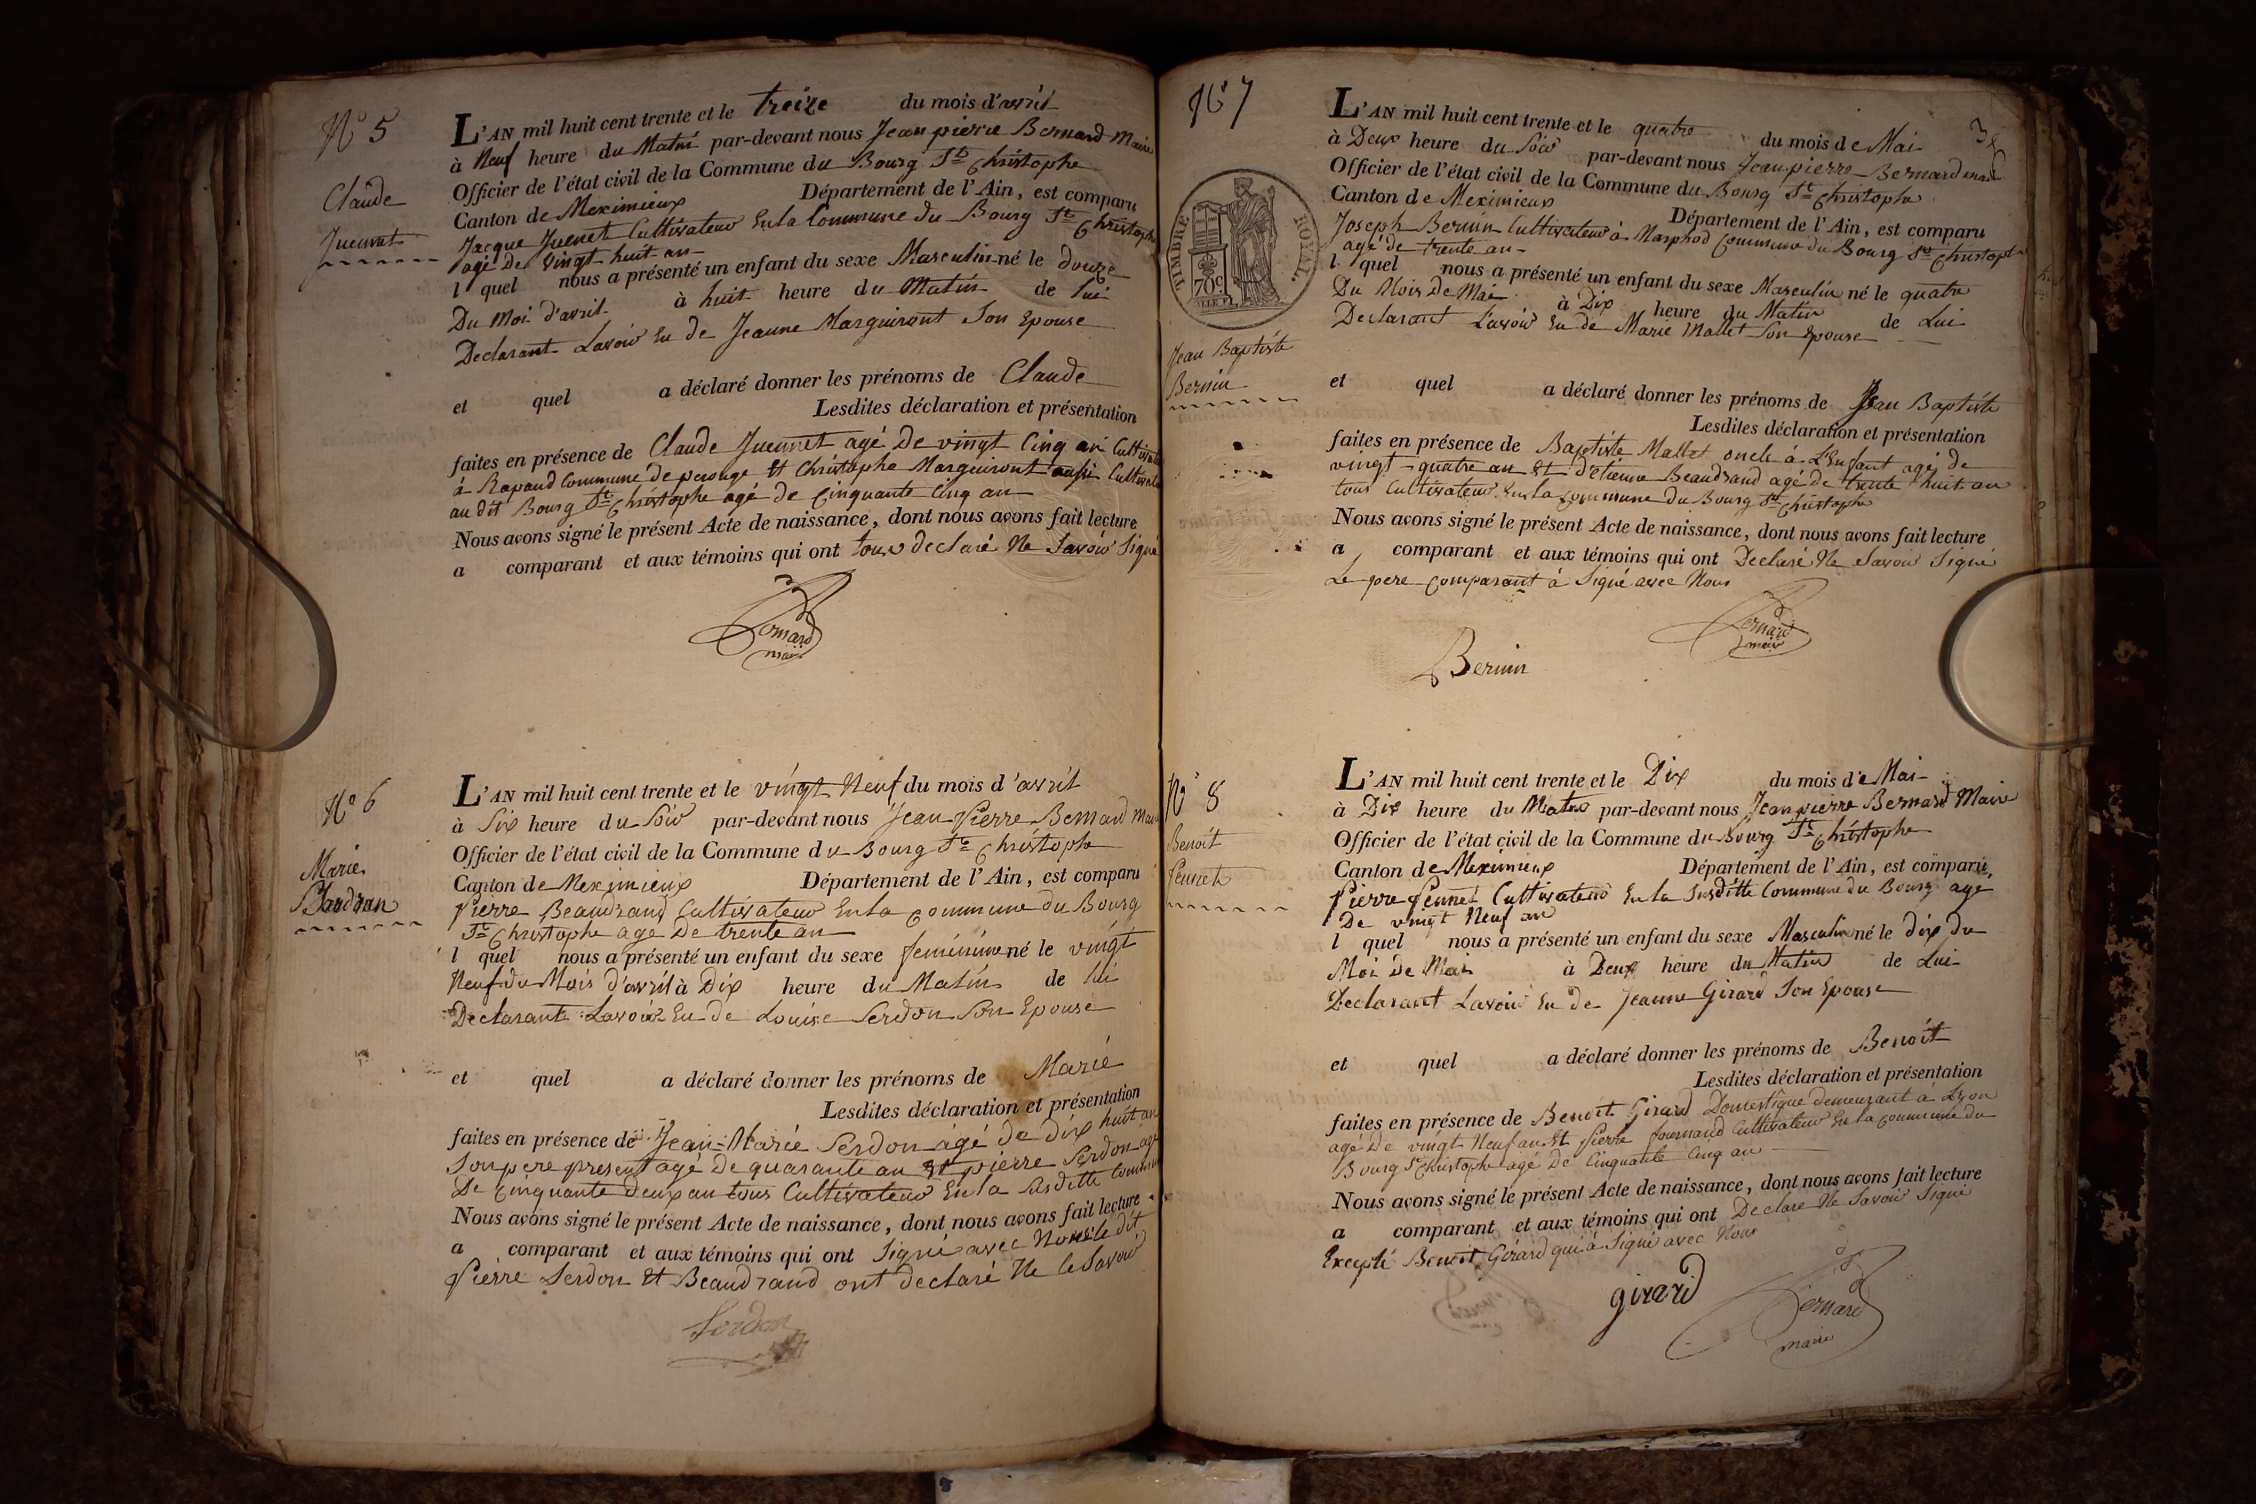 N° 5
Claude
Juennet
L'AN mil huit cent trente et le treize du mois d'avril
à Neuf heure du Matin par-devant nous Jean pierre Bernard Maire
Officier de l'état civil de la Commune du Bourg St Christophe
Canton de Meximieux Département de l'Ain, est comparu
Jacque Juenet Cultivateur En la Commune du Bourg St Christophe
agé de vingt huit an
l quel nous a présenté un enfant du sexe Masculin né le douze
Du Moi d'avril à huit heure du Matin de lui
Declarant Lavoir Eu de Jeanne Marguiront Son Epouse
et quel a déclaré donner les prénoms de Claude
Lesdites déclaration et présentation
faites en présence de Claude Juennet agé De vingt Cinq an
à Rapand Commune de perouge Et Christophe Marguiront aussi
au dit Bourg St Christophe agé de Cinquante Cinq an
Nous avons signé le présent Acte de naissance, dont nous avons fait lecture
a comparant et aux témoins qui ont tous declaré Ne Savoir Signé
Bernard
maire
N° 6
Marie
Baudran
L'AN mil huit cent trente et le vingt Neuf du mois d'avril
à Six heure du Soir par-devant nous Jean Pierre Bernard
Officier de l'état civil de la Commune du Bourg St Christophe
Canton de Meximieux Département de l'Ain, est comparu
Pierre Beaudrand Cultivateur En la Commune du Bourg
St Christophe age De trente an
l quel nous a présenté un enfant du sexe feminim né le vingt
Neuf du Mois d'avril à Dix heure du Matin de lui
Declarant Lavoir Eu De Louise Serdon Son Epouse
et quel a déclaré donner les prénoms de Marie
Lesdites déclaration et présentation
faites en présence de Jean-Marie Serdon agé De dix huit an
Son pere present agé De quarante an Et pierre Serdon agé
De Cinquante Deux an tous Cultivateur En la Susditte
Nous avons signé le présent Acte de naissance, dont nous avons fait lecture
a comparant et aux témoins qui ont Signé avec Nous le dit
Pierre Serdon Et Beaudrand ont declaré Ne le Savoir
Serdon
N° 7
38
TIMBRE ROYAL.
70c
Jean Baptiste
Bernin
L'AN mil huit cent trente et le quatre du mois de Mai
à Deux heure du Soir par-devant nous Jean pierre Bernard maire
Officier de l'état civil de la Commune du Bourg St Christophe
Canton de Meximieux Département de l'Ain, est comparu
Joseph Bernin Cultivateur à Marphod Commune du Bourg St Christophe
agé de trente an
l quel nous a présenté un enfant du sexe Masculin né le quatre
Du Mois De Mai à Dix heure du Matin de Lui
Declarant Lavoir Eu de Marie Mallet Son Epouse
et quel a déclaré donner les prénoms de Jean Baptiste
Lesdites déclaration et présentation
faites en présence de Baptiste Mallet oncle à L'Enfant agé de
vingt quatre an Et d'etienne Beaudrand agé de trente huit an
tous Cultivateur En la Commune du Bourg St Christophe
Nous avons signé le présent Acte de naissance, dont nous avons fait lecture
a comparant et aux témoins qui ont Declaré Ne Savoir Signé
Le pere Comparant à Signé avec Nous
Bernard
maire
Bernin
N° 8
Benoit
Pennet
L'AN mil huit cent trente et le Dix du mois de Mai
à Dix heure du Matin par-devant nous Jean pierre Bernard Maire
Officier de l'état civil de la Commune du Bourg St Christophe
Canton de Meximieux Département de l'Ain, est comparu,
Pierre Pennet Cultivateur En la Susditte Commune du Bourg age
De vingt Neuf an
l quel nous a présenté un enfant du sexe Masculin né le dix du
Moi De Mai à Deux heure du Matin de Lui
Declarant Lavoir Eu De Jeanne Girard Son Epouse
et quel a déclaré donner les prénoms de Benoit
Lesdites déclaration et présentation
faites en présence de Benoit Girard Domestique demeurant à Lyon
agé De vingt Neuf an Et Pierre fournand Cultivateur En la Commune du
Bourg St Christophe agé De Cinquante Cinq an
Nous avons signé le présent Acte de naissance, dont nous avons fait lecture
a comparant et aux témoins qui ont Declare Ne Savoir Signé
Excepté Benoit Girard qui à Signé avec Nous
girard
Bernard
maire